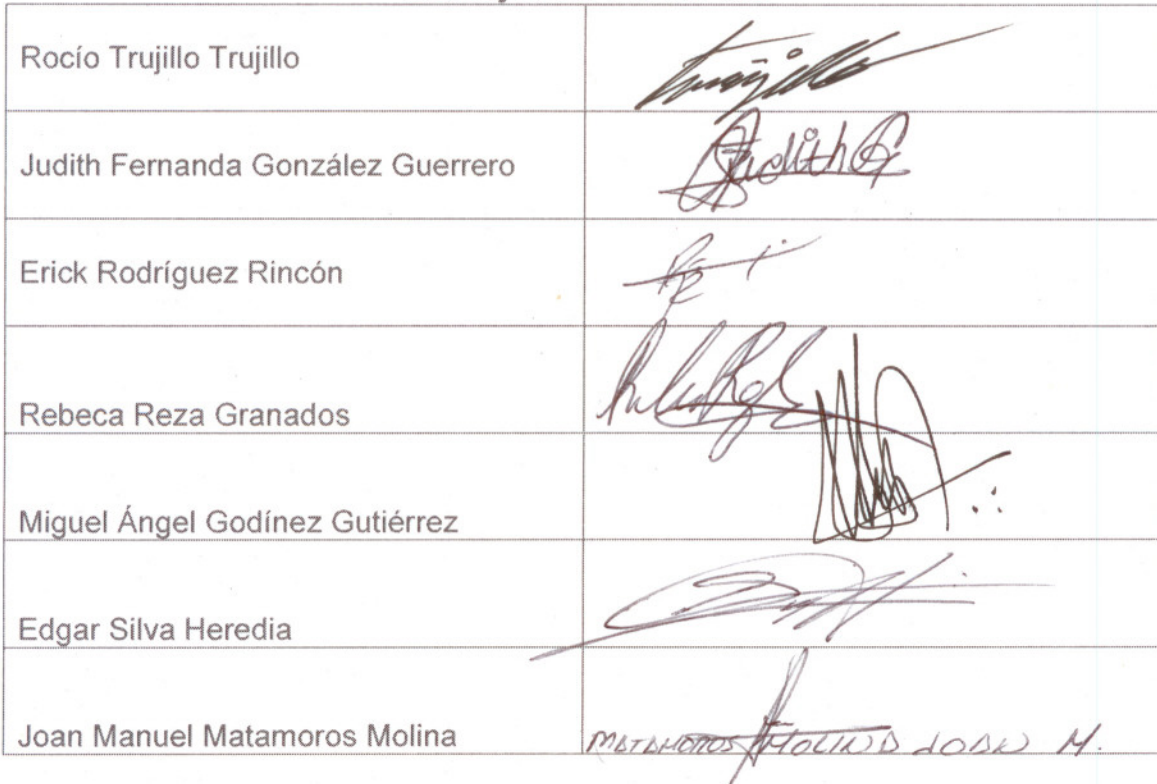 Rocío Trujillo Trujillo
Trujillo
Judith Fernanda González Guerrero
Judith G
Erick Rodríguez Rincón
Rebeca Reza Granados
Miguel Ángel Godínez Gutiérrez
Edgar Silva Heredia
Joan Manuel Matamoros Molina
MATAMOROS MOLINA JOAN M.